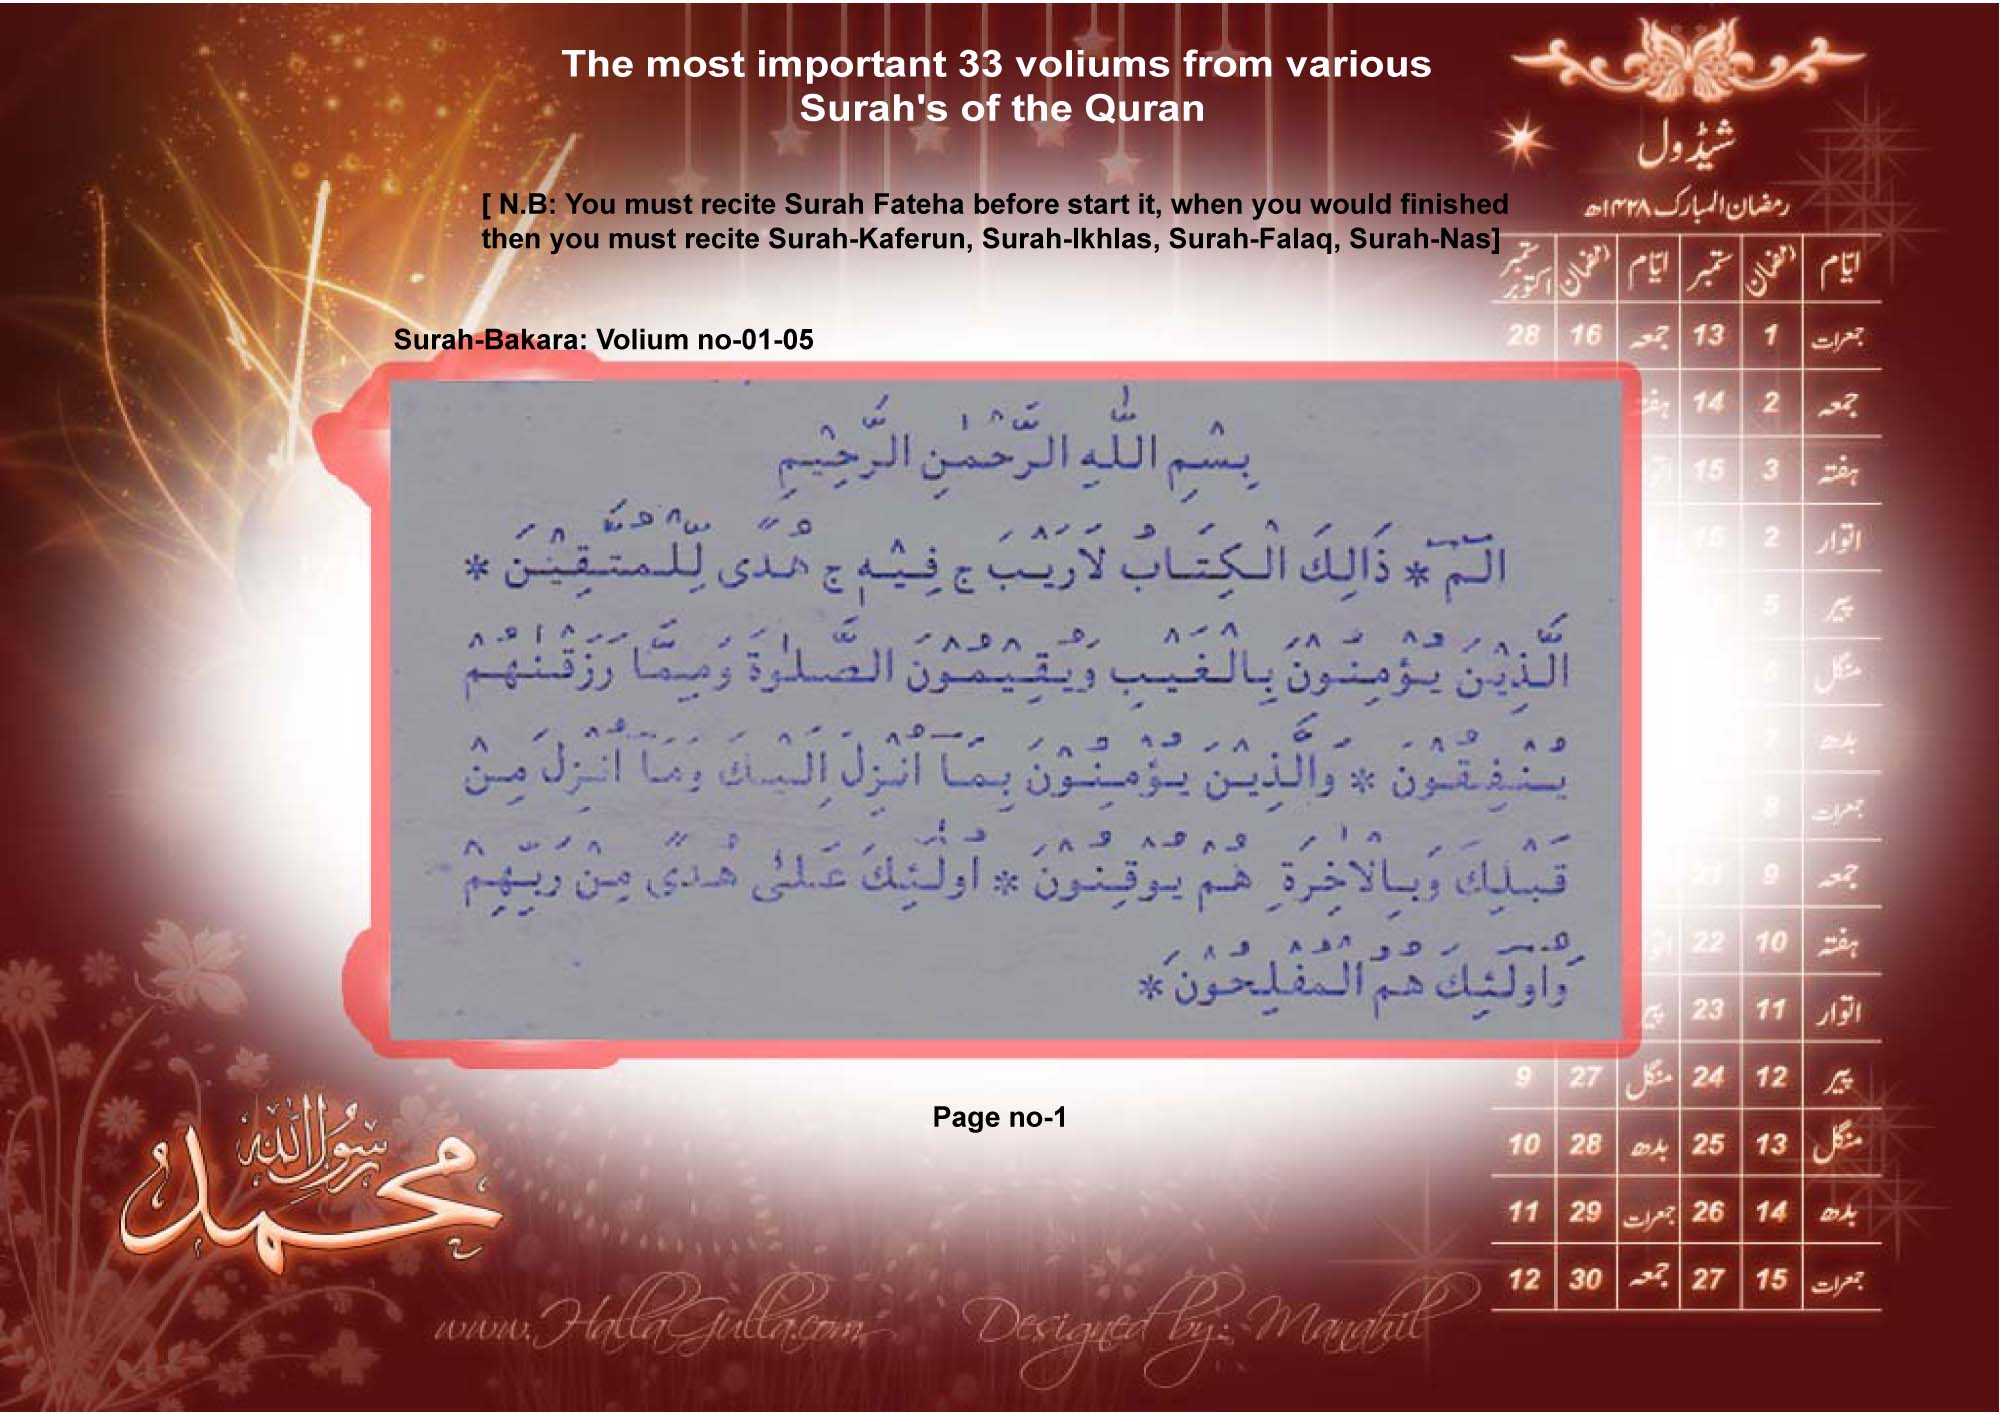 The most important 33 voliums from various
Surah's of the Quran
[ N.B: You must recite Surah Fateha before start it, when you would finished
then you must recite Surah-Kaferun, Surah-Ikhlas, Surah-Falaq, Surah-Nas]
Surah-Bakara: Volium no-01-05
بِسْمِ اللّٰهِ الرَّحْمٰنِ الرَّحِيْمِ
الٓمّٓ * ذَالِكَ الْكِتَابُ لَارَيْبَ ج فِيْهِ ج هُدًى لِّلْمُتَّقِيْنَ *
الَّذِيْنَ يُؤْمِنُوْنَ بِالْغَيْبِ وَيُقِيْمُوْنَ الصَّلٰوةَ وَمِمَّا رَزَقْنٰهُمْ
يُنْفِقُوْنَ * وَالَّذِيْنَ يُؤْمِنُوْنَ بِمَآ اُنْزِلَ اِلَيْكَ وَمَآ اُنْزِلَ مِنْ
قَبْلِكَ وَبِالْاٰخِرَةِ هُمْ يُوْقِنُوْنَ * اُولٰٓئِكَ عَلٰى هُدًى مِنْ رَبِّهِمْ
وَاُولٰٓئِكَ هُمُ الْمُفْلِحُوْنَ *
Page no-1
شیڈول
رمضان المبارک ۱۴۲۸ھ
ایّام رمضان ستمبر ایّام رمضان ستمبر اکتوبر
جمعرات 1 13 جمعہ 16 28
جمعہ 2 14
ہفتہ 3 15
اتوار 2 16
پیر 5
منگل 6
بدھ 7
جمعرات 8
جمعہ 9 21
ہفتہ 10 22
اتوار 11 23 پیر
پیر 12 24 منگل 27 9
منگل 13 25 بدھ 28 10
بدھ 14 26 جمعرات 29 11
جمعرات 15 27 جمعہ 30 12
محمد رسول الله
www.HallaGulla.com
Designed by: Manahil